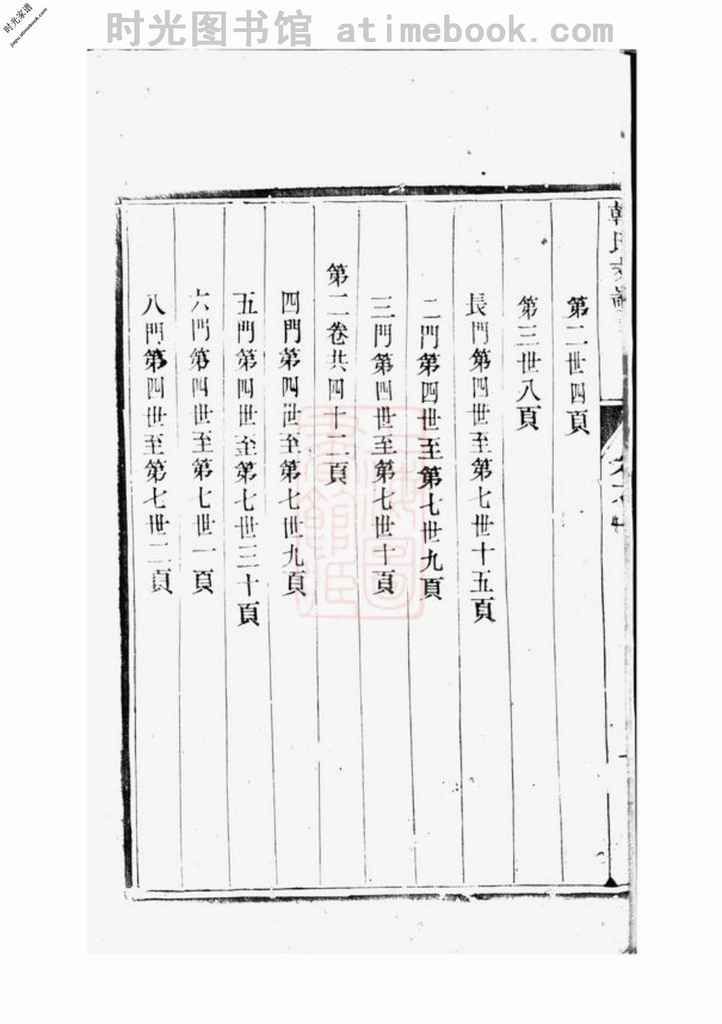 时光图书馆 atimebook.com
时光家谱
jiapu.atimebook.com
第二世四頁
第三世八頁
長門第四世至第七世十五頁
二門第四世至第七世九頁
三門第四世至第七世十頁
第二卷共四十二頁
四門第四世至第七世九頁
五門第四世至第七世三十頁
六門第四世至第七世一頁
八門第四世至第七世二頁